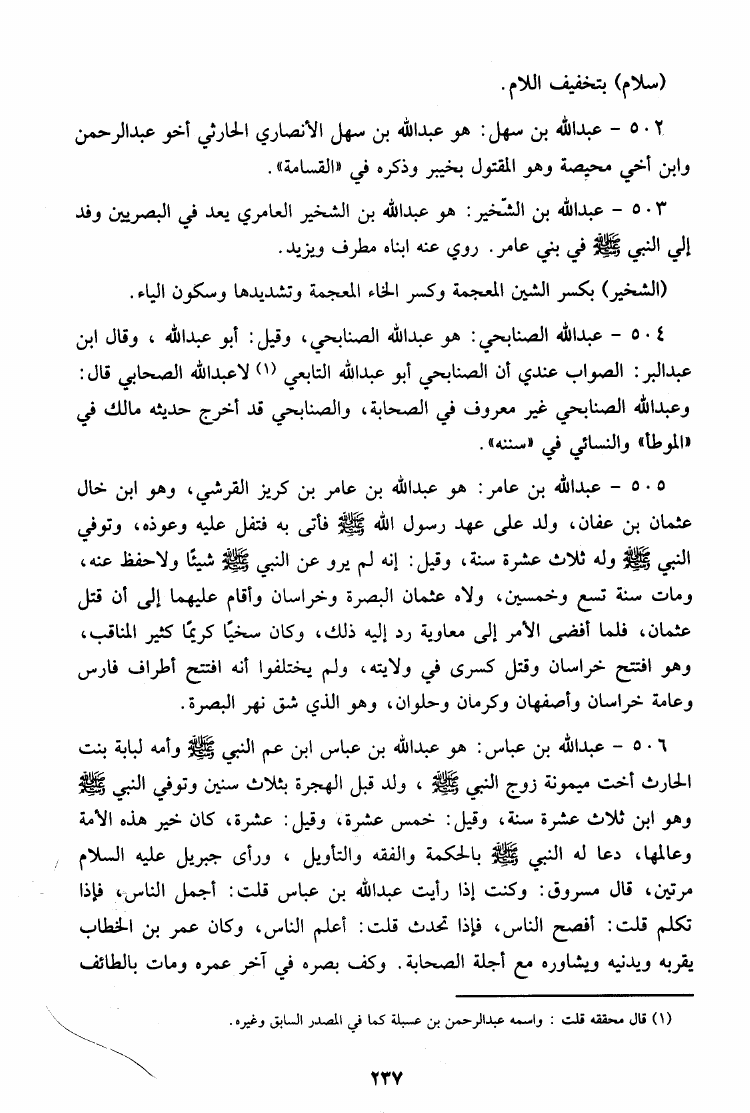 (سلام) بتخفيف اللام.
٥٠٢ - عبدالله بن سهل: هو عبدالله بن سهل الأنصاري الحارثي أخو عبدالرحمن
وابن أخي محيصة وهو المقتول بخيبر وذكره في «القسامة».
٥٠٣ - عبدالله بن الشّخير: هو عبدالله بن الشخير العامري يعد في البصريين وفد
إلي النبي ﷺ في بني عامر. روي عنه ابناه مطرف ويزيد.
(الشخير) بكسر الشين المعجمة وكسر الخاء المعجمة وتشديدها وسكون الياء.
٥٠٤ - عبدالله الصنابحي: هو عبدالله الصنابحي، وقيل: أبو عبدالله ، وقال ابن
عبدالبر: الصواب عندي أن الصنابحي أبو عبدالله التابعي (١) لاعبدالله الصحابي قال:
وعبدالله الصنابحي غير معروف في الصحابة، والصنابحي قد أخرج حديثه مالك في
«الموطأ» والنسائي في «سننه».
٥٠٥ - عبدالله بن عامر: هو عبدالله بن عامر بن كريز القرشي، وهو ابن خال
عثمان بن عفان، ولد على عهد رسول الله ﷺ فأتى به فتفل عليه وعوذه، وتوفي
النبي ﷺ وله ثلاث عشرة سنة، وقيل: إنه لم يرو عن النبي ﷺ شيئًا ولاحفظ عنه،
ومات سنة تسع وخمسين، ولاه عثمان البصرة وخراسان وأقام عليهما إلى أن قتل
عثمان، فلما أفضى الأمر إلى معاوية رد إليه ذلك، وكان سخيًا كريمًا كثير المناقب،
وهو افتتح خراسان وقتل كسرى في ولايته، ولم يختلفوا أنه افتتح أطراف فارس
وعامة خراسان وأصفهان وكرمان وحلوان، وهو الذي شق نهر البصرة.
٥٠٦ - عبدالله بن عباس: هو عبدالله بن عباس ابن عم النبي ﷺ وأمه لبابة بنت
الحارث أخت ميمونة زوج النبي ﷺ ، ولد قبل الهجرة بثلاث سنين وتوفي النبي ﷺ
وهو ابن ثلاث عشرة سنة، وقيل: خمس عشرة، وقيل: عشرة، كان خير هذه الأمة
وعالمها، دعا له النبي ﷺ بالحكمة والفقه والتأويل ، ورأى جبريل عليه السلام
مرتين، قال مسروق: وكنت إذا رأيت عبدالله بن عباس قلت: أجمل الناس، فإذا
تكلم قلت: أفصح الناس، فإذا تحدث قلت: أعلم الناس، وكان عمر بن الخطاب
يقربه ويدنيه ويشاوره مع أجلة الصحابة. وكف بصره في آخر عمره ومات بالطائف
(١) قال محققه قلت : واسمه عبدالرحمن بن عسيلة كما في المصدر السابق وغيره.
٢٣٧